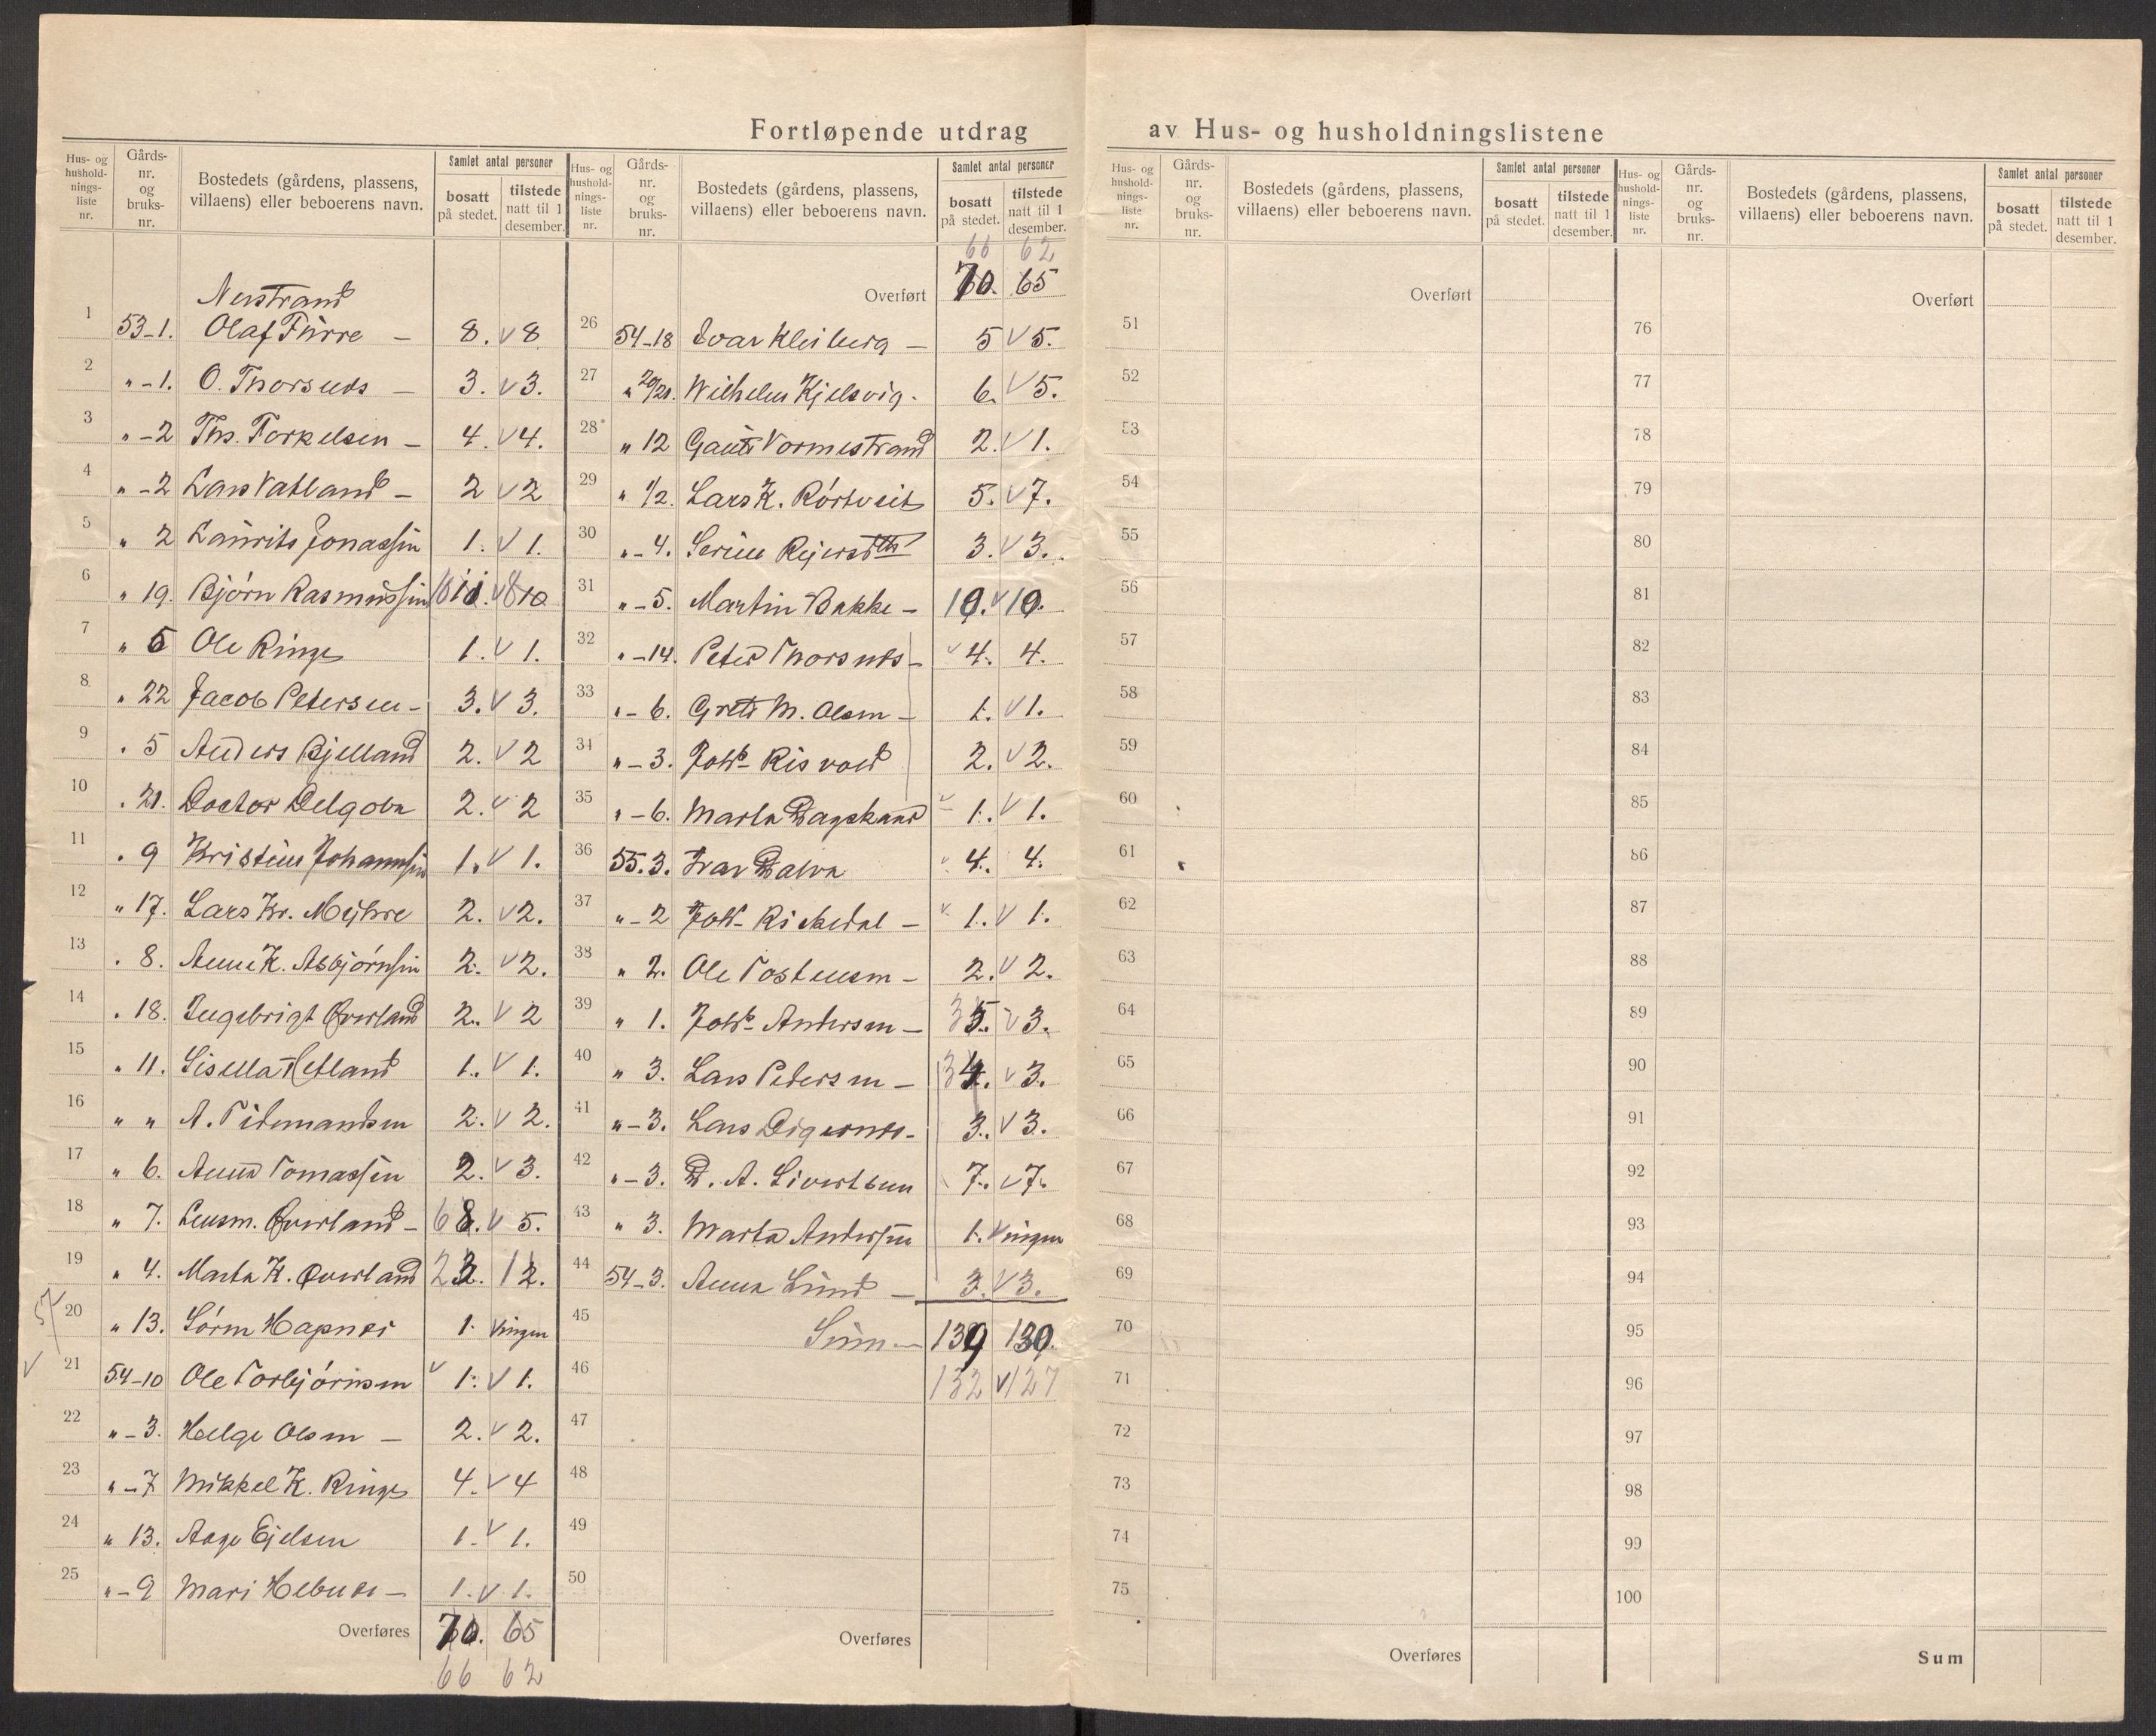 Fortløpende utdrag av Hus- og husholdningslistene
Hus- og hushold-nings-liste nr. Gårds-nr. og bruks-nr. Bostedets (gårdens, plassens, villaens) eller beboerens navn. Samlet antal personer bosatt på stedet. tilstede natt til 1 desember.
Nerstrand
1 53-1. Olaf Førre - 8. v 8
2 " - 1. O. Thorsnes - 3. v 3.
3 " - 2 Ths. Torkelsen - 4. v 4.
4 " - 2 Lars Vatland - 2 v 2
5 " 2 Laurits Jonassen 1. v 1.
6 " 19. Bjørn Rasmussen
7 " 5 Ole Ringe 1. v 1.
8 " 22 Jacob Petersen - 3. v 3.
9 " 5 Anders Bjelland 2. v 2
10 " 21. Doctor Delgobe 2. v 2
11 " 9 Kristine Johannsen 1. v 1.
12 " 17. Lars Kr. Myhre 2. v 2.
13 " 8. Anne K. Asbjørnsen 2. v 2.
14 " 18. Ingebrigt Øverland 2. v 2
15 " 11. Sisella Hetland 1. v 1.
16 " " A. Tidemandsen 2. v 2.
17 " 6. Anna Tomassen 2. v 3.
18 " 7. Lensm. Øverland - 6 8. v 5.
19 " 4. Marta K. Øverland 2 3. 1 2.
20 " 13. Søren Hapnes 1. v ingen
21 54-10 Ole Torbjørnsen v 1. v 1.
22 " - 3. Helge Olsen - 2. v 2.
23 " - 7 Mikkel K. Ringe 4. v 4
24 " 13. Aage Ejelsen 1. v 1.
25 " - 9 Mari Hebnes - 1. v 1.
Overføres 70. 65
66 62
Hus- og hushold-nings-liste nr. Gårds-nr. og bruks-nr. Bostedets (gårdens, plassens, villaens) eller beboerens navn. Samlet antal personer bosatt på stedet. tilstede natt til 1 desember.
66 62
Overført 70. 65
26 54-18 Ivar Kleiberg - 5 v 5.
27 " 20/21. Wilhelm Kjelsvig. 6. v 5.
28 " 12 Gaute Vormestrand 2. v 1.
29 " 1/2. Lars K. Rørtveit 5. v 7.
30 " - 4. Serine Reiersdtr 3. v 3.
31 " - 5. Martin Bakke - 10. v 10.
32 " - 14. Peter Thorsnes - v 4. 4.
33 " - 6. Grete M. Olsen - 1. v 1.
34 " - 3. Johs. Risvold 2. v 2.
35 " - 6. Marta Dagsland v 1. v 1.
36 55.3. Ivar Dalva v 4. 4.
37 " - 2 Johs. Riskedal - v 1. v 1.
38 " 2. Ole Tostensen - 2. v 2.
39 " 1. Johs. Andersen - 3 5. v 3.
40 " 3. Lars Pedersen - 3 4. v 3.
41 " - 3. Lars Digernes - 3. v 3.
42 " - 3. D. A. Sivertsen 7. v 7.
43 " 3. Marta Andersen 1. v ingen
44 54-3. Anna Lund - 3. v 3.
45 Sum - 139 130.
46 132 v 127
47
48
49
50
Overføres
Hus- og hushold-nings-liste nr. Gårds-nr. og bruks-nr. Bostedets (gårdens, plassens, villaens) eller beboerens navn. Samlet antal personer bosatt på stedet. tilstede natt til 1 desember.
Overført
51
52
53
54
55
56
57
58
59
60
61
62
63
64
65
66
67
68
69
70
71
72
73
74
75
Overføres
Hus- og hushold-nings-liste nr. Gårds-nr. og bruks-nr. Bostedets (gårdens, plassens, villaens) eller beboerens navn. Samlet antal personer bosatt på stedet. tilstede natt til 1 desember.
Overført
76
77
78
79
80
81
82
83
84
85
86
87
88
89
90
91
92
93
94
95
96
97
98
99
100
Sum